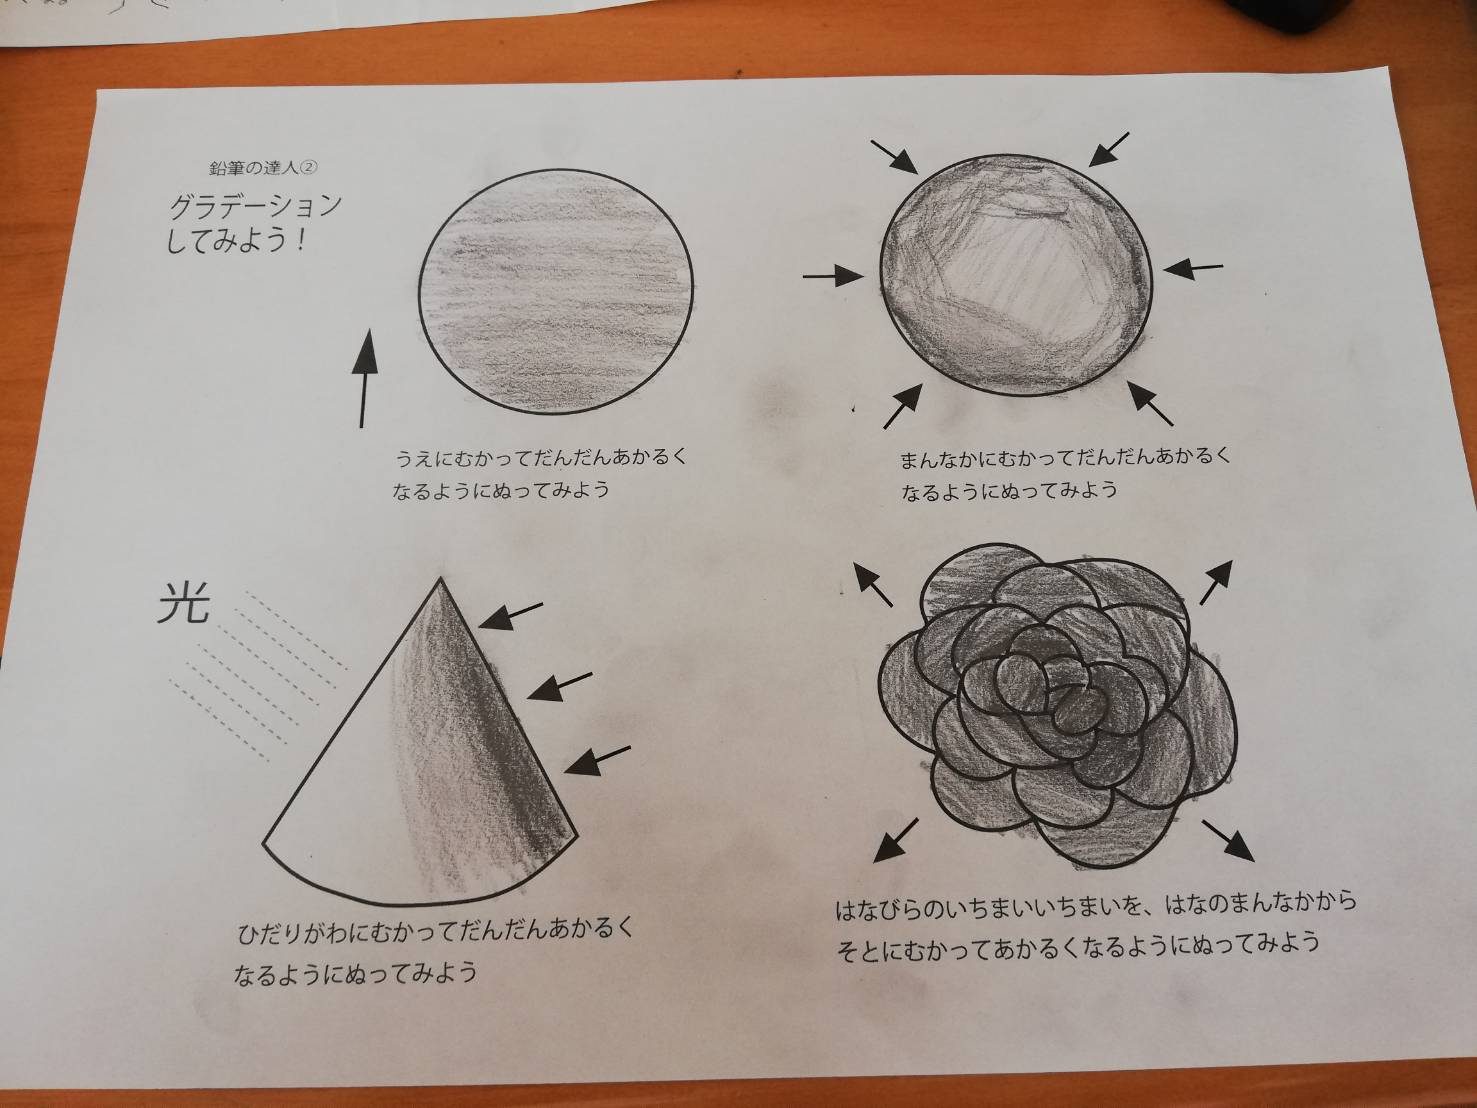 鉛筆の達人②
グラデーション
してみよう！
うえにむかってだんだんあかるく
なるようにぬってみよう
まんなかにむかってだんだんあかるく
なるようにぬってみよう
光
ひだりがわにむかってだんだんあかるく
なるようにぬってみよう
はなびらのいちまいいちまいを、はなのまんなかから
そとにむかってあかるくなるようにぬってみよう